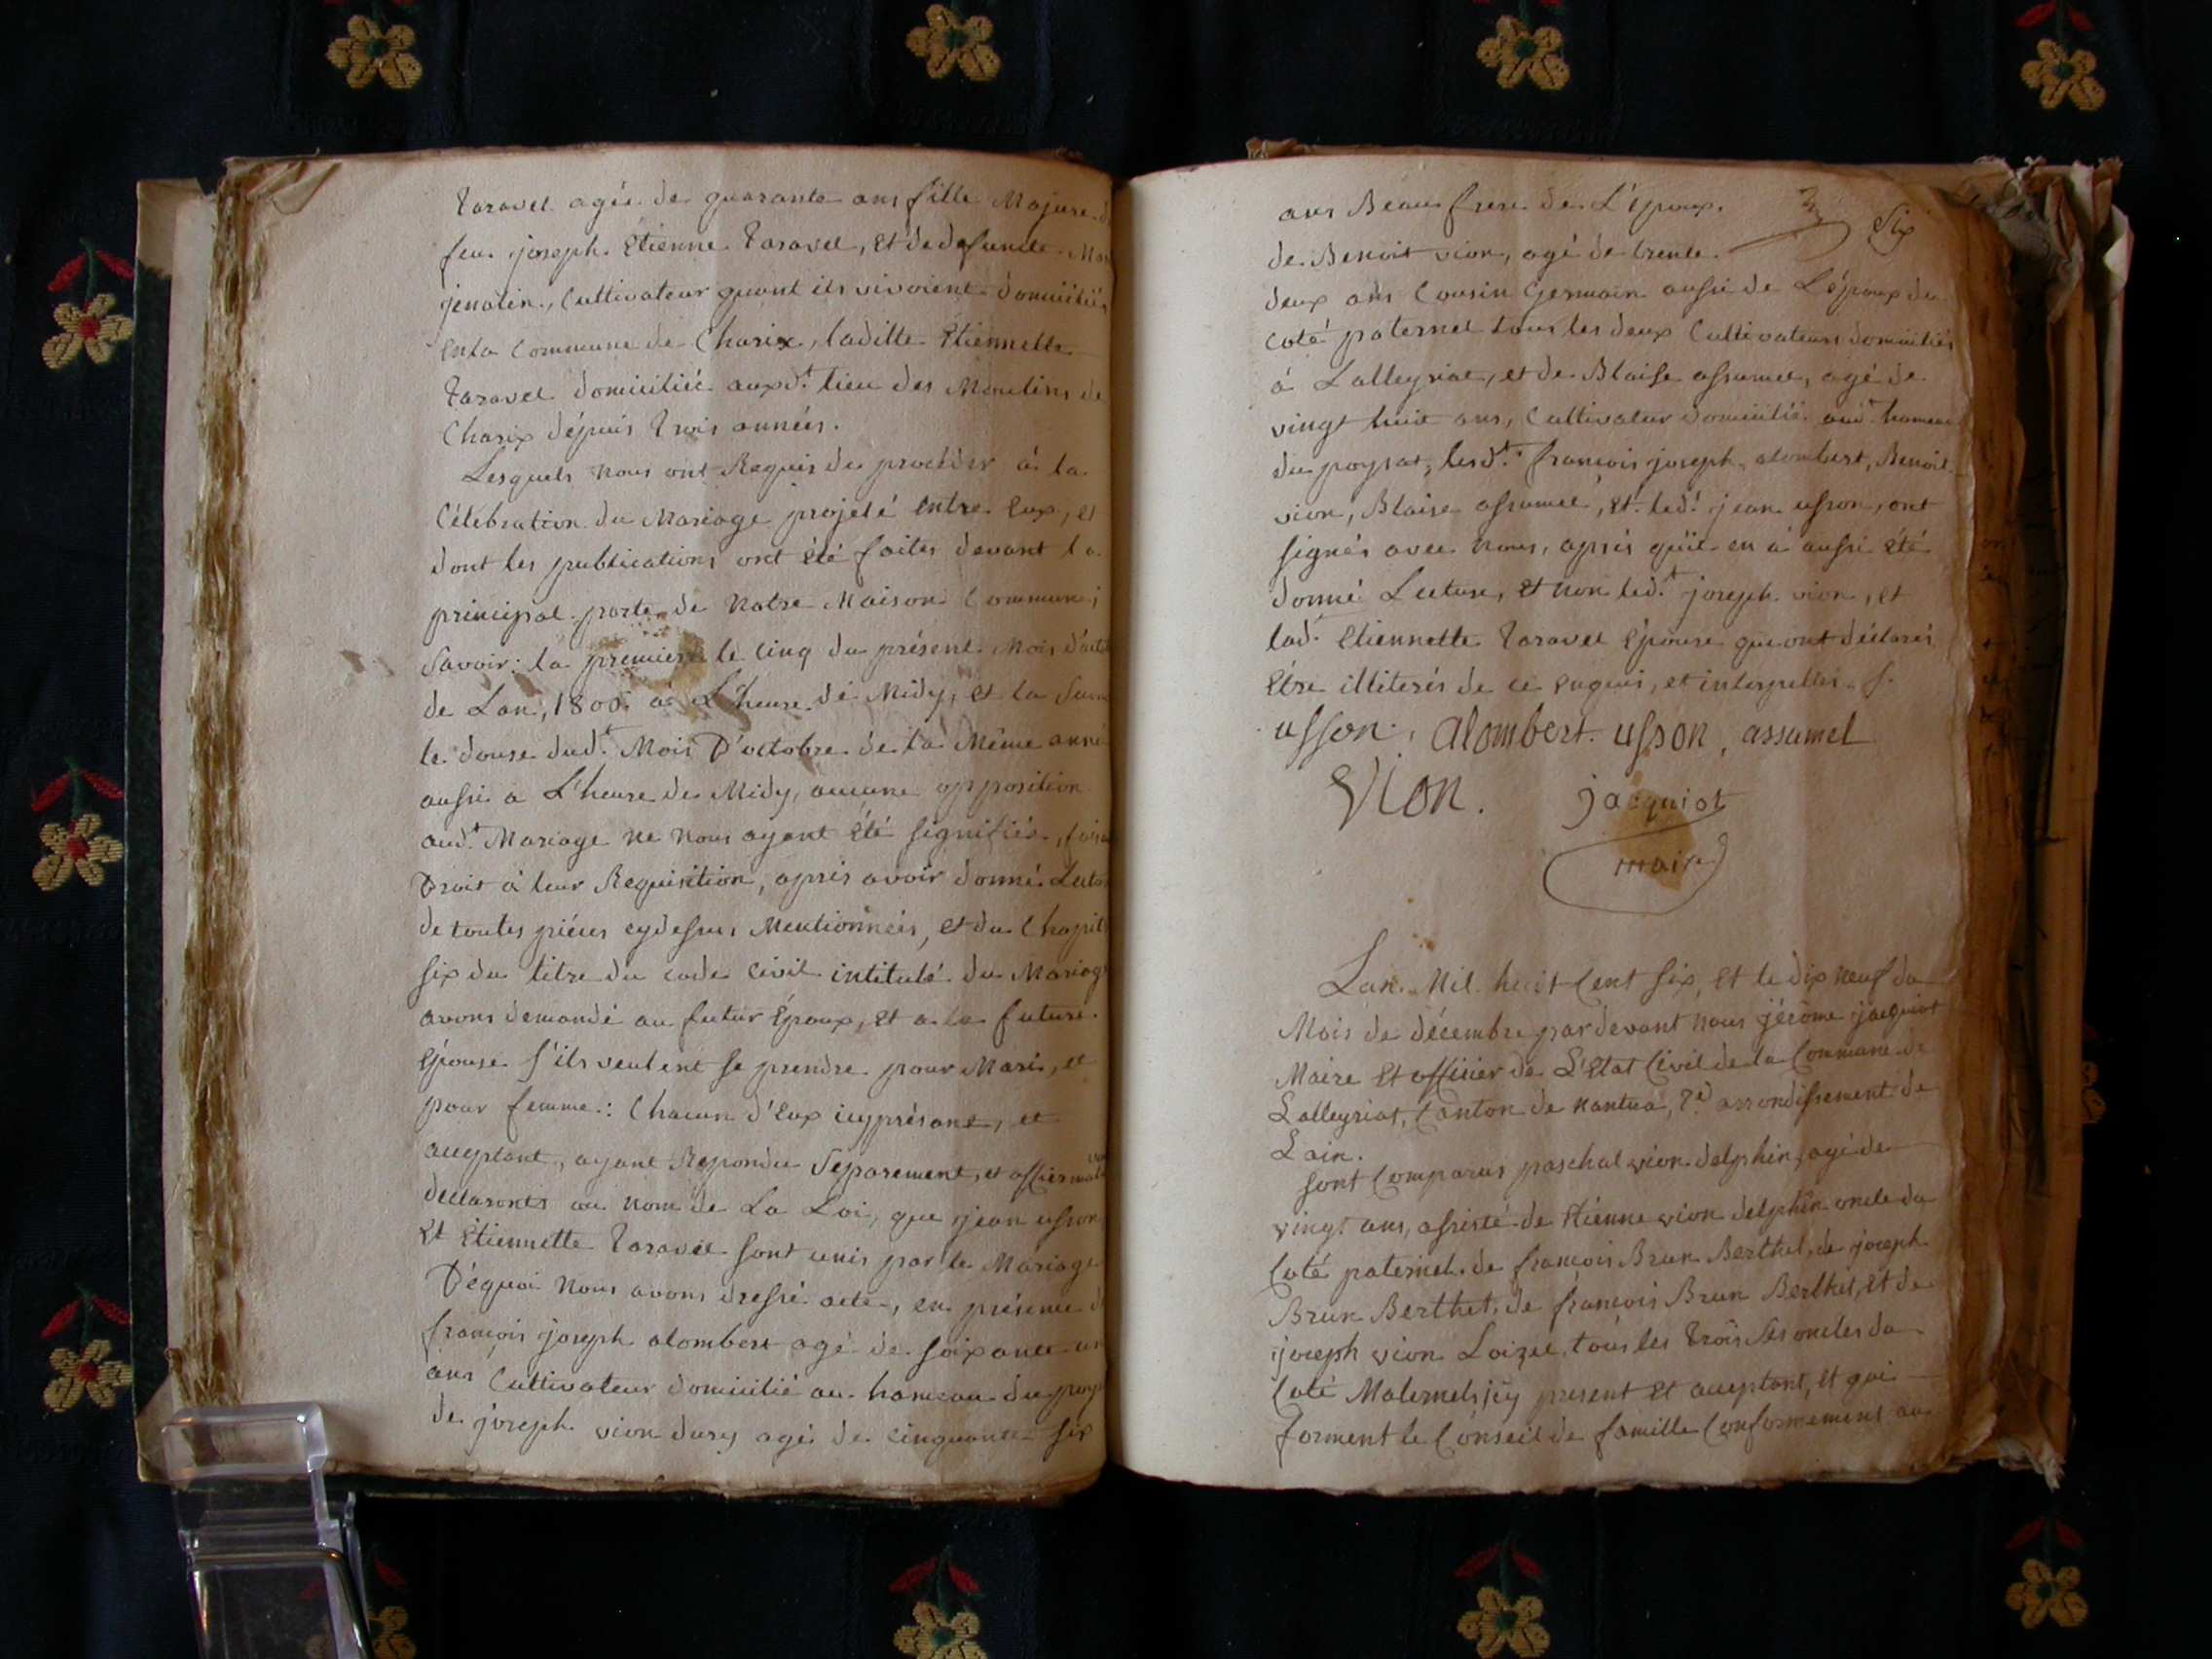 taravel agée de quarante ans fille Majure d
feu joseph Etienne taravel, et de defuncte Ma
jenolin, Cultivateur quant ils vivoient domiciliés
en la Commune de Charix, laditte Etiennette
taravel domiciliée auxd.t lieu des Moulins de
Charix dépuis trois années.
Lesquels nous ont Requis de procéder à la
Célébration du Mariage projeté entre Eux, et
dont les publications ont été faites devant la
principal porte de Notre Maison Commune;
Savoir: la premiere le cinq du présent Mois d'octo
de Lan, 1806 à L'heure de Midy, et la
le douse dud.t Mois D'octobre de la Même anné
aussi a L'heure de Midy, aucune opposition
aud.t Mariage ne nous ayant été signifiée, fais
Droit à leur Requisition, après avoir donné Lectu
de toutes pièces cydessus Mentionnées, et du Chapit
six du titre du code Civil intitulé du Mariag
avons demandé au futur Époux, et a la future
Epouse s'ils veulent se prendre pour Mari, et
pour femme: Chacun d'Eux icyprésant, et
acceptant, ayant Repondu Séparement, et affiermati
declaronts au nom de La Loi, que jean usson
Et Etiennette taravel sont unis par le Mariage
Déquoi Nous avons dressé acte, en présence d
françois joseph alombert agé de soixante un
ans Cultivateur domicilié au hameau du poy
de joseph vion dury agé de cinquante six
ans Beau frere de L'époux. Six
de Benoit vion, agé de trente
deux ans Cousin Germain aussi de L'époux du
Coté paternel tous les deux Cultivateurs domiciliés
à Lalleyriat, et de Blaise assumel, agé de
vingt huit ans, Cultivateur domicilié aud.t hameau
du poyzat, lesd.ts françois joseph alombert, Benoit
vion, Blaise assumel, et led.t jean usson, ont
signés avec Nous, après qu'il en à aussi été
donné Lecture, et non led.t joseph vion, et
lad.t Etiennette taravel Epouse qui ont déclarés
Etre illiterés de ce enquis, et interpellés
usson. alombert. usson, assumel
Vion. jacquiot
maire
Lan Mil huit Cent six, et le dix neuf du
Mois de décembre pardevant nous jérôme jacquiot
Maire et officier de L'Etat Civil de la Commune de
Lalleyriat, Canton de Nantua, arrondissement de
Lain.
sont Comparus paschal vion delphin, agé de
vingt ans, assisté de Etienne vion delphin oncle du
Coté paternel de françois Brun Berthet, de joseph
Brun Berthet, de françois Brun Berthet, et de
joseph vion Loizel, tous les trois ses oncles du
Coté Maternels icy present et acceptant, et qui
forment le Conseil de famille Conformement au